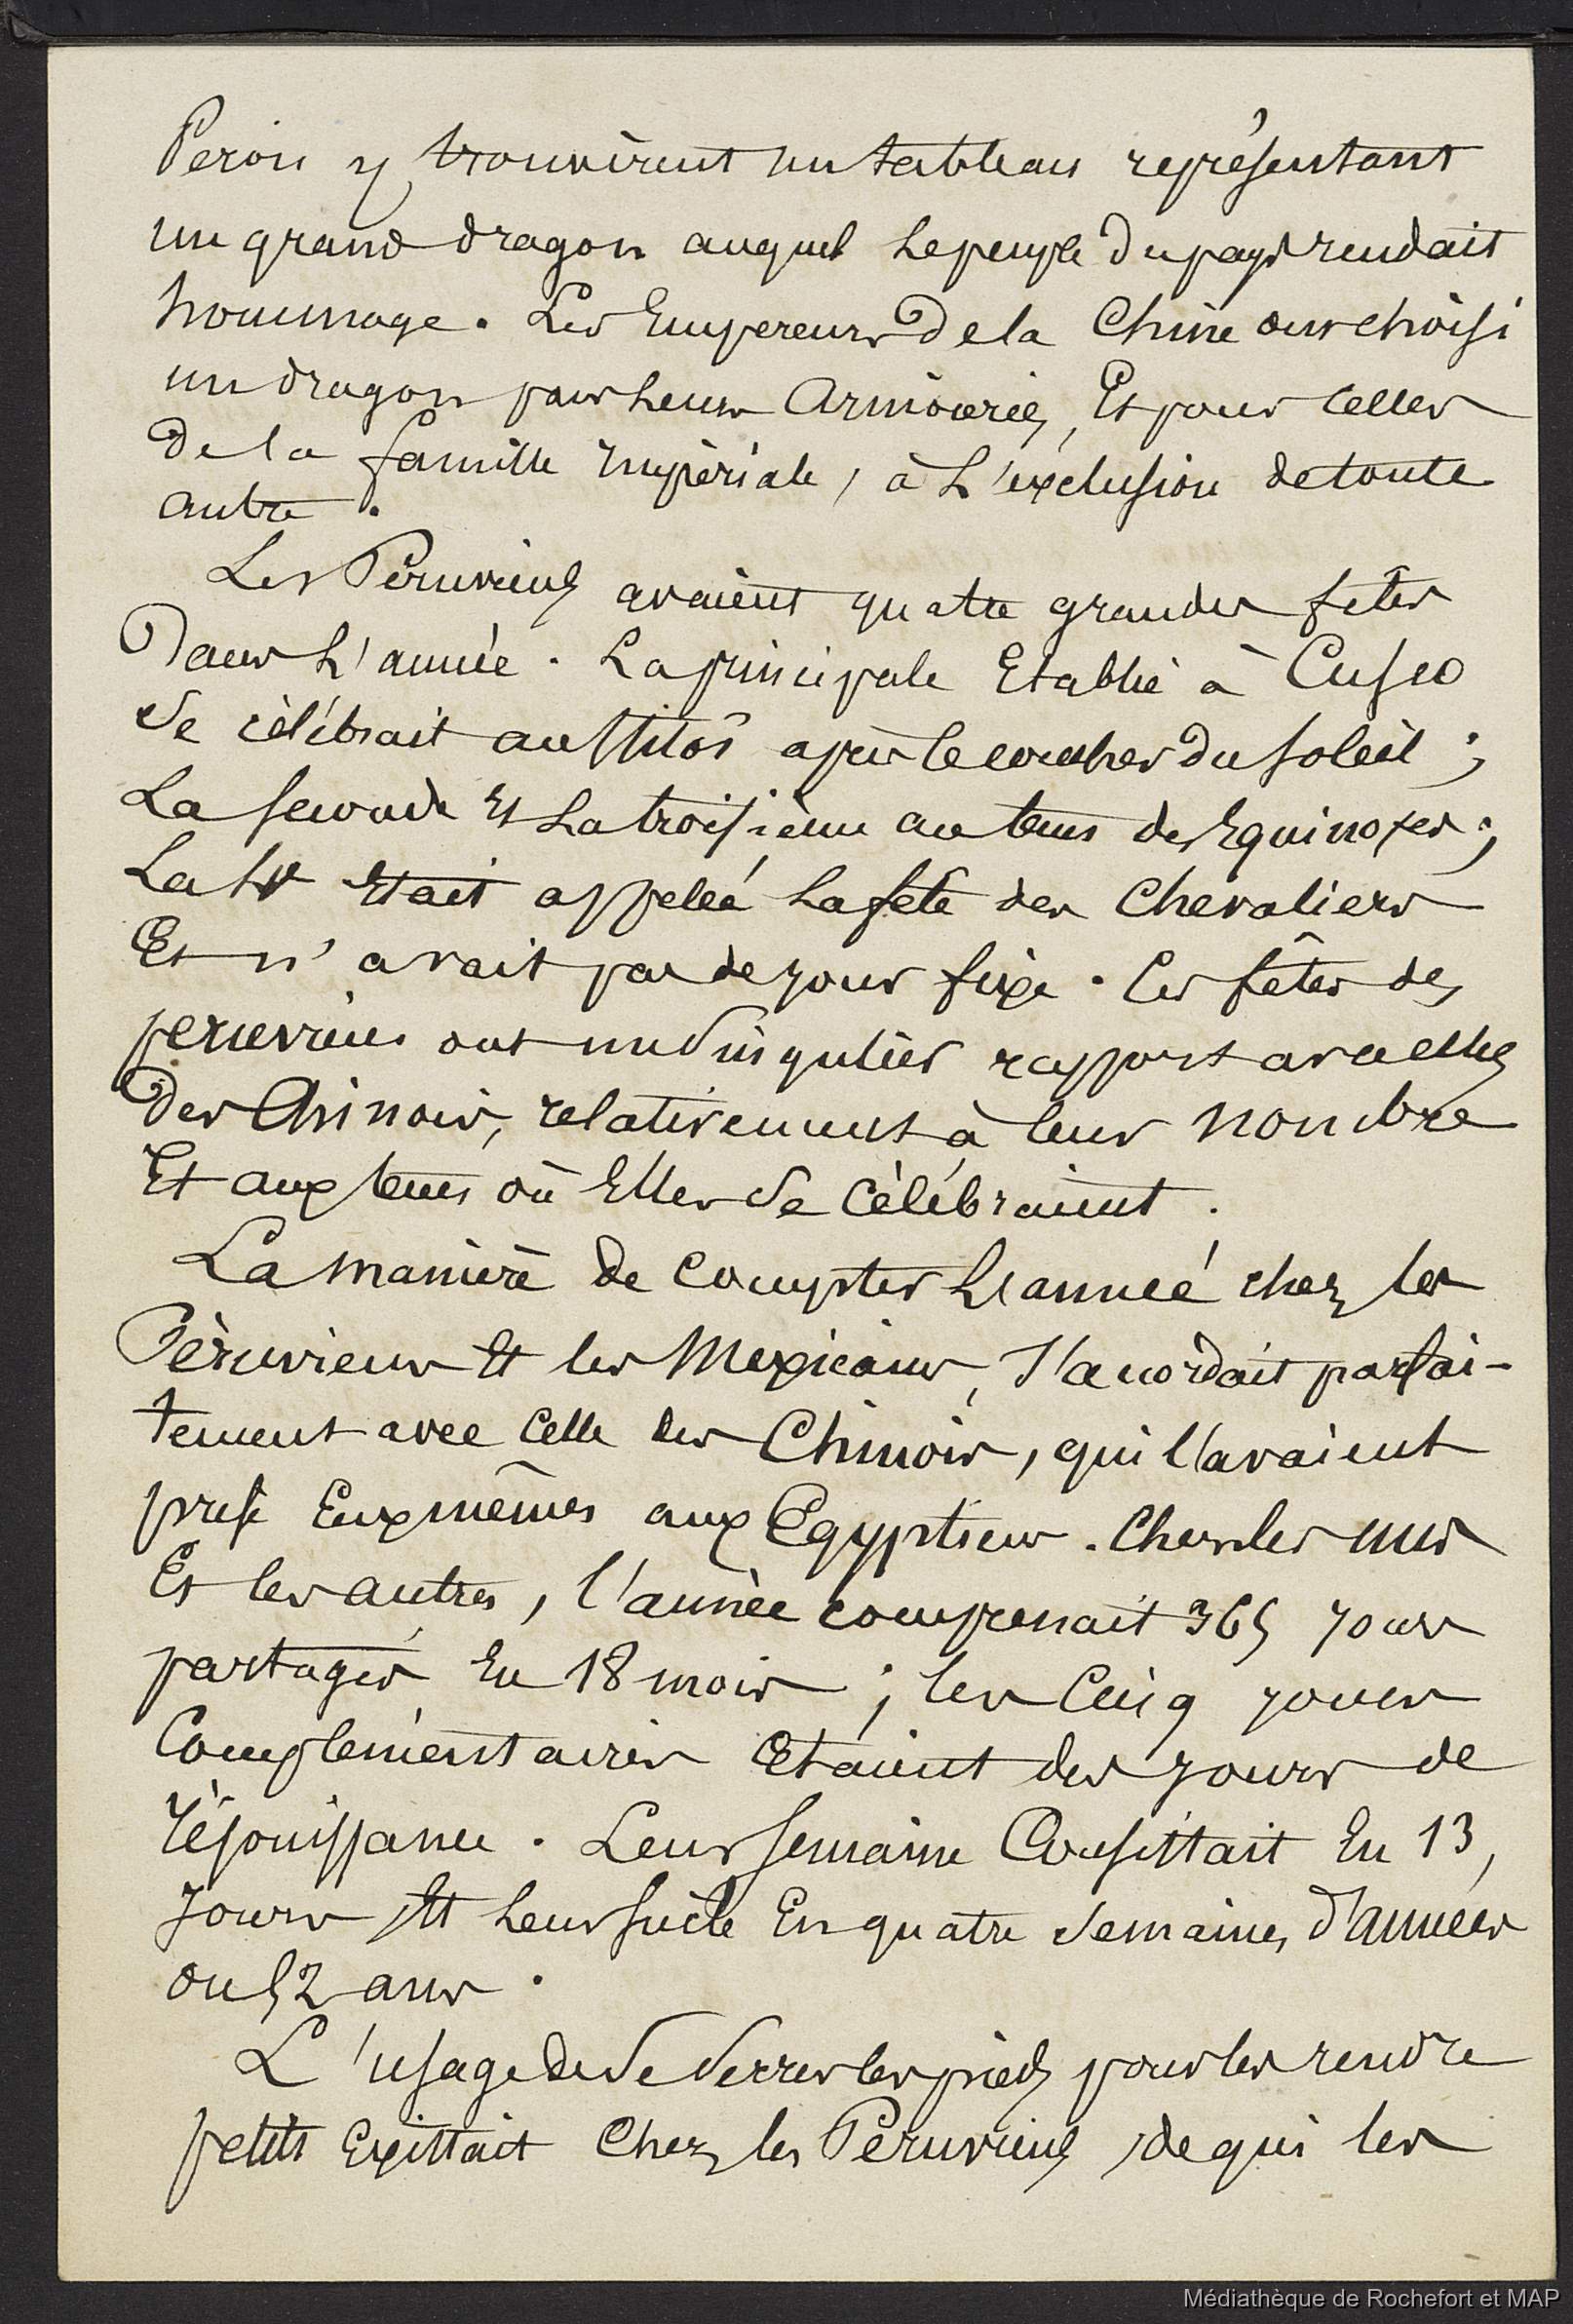 Perou y trouvèrent un tableau représentant
un grand dragon auquel le peuple du pays rendait
hommage. Les Empereurs de la Chine ont choisi
un dragon pour leurs Armoiries, Et pour celles
de la famille impériale, à L'exclusion de toute
autre.
Les Péruviens avaient quatre grandes fêtes
Dans L'année. La principale Etablie à Cusco
se célébrait aussitôt après le coucher du soleil ;
La seconde Et La troisième au tems des Equinoxes ;
La 4e Etait appelée La fête des Chevaliers
Et n'avait pas de jour fixe. Ces fêtes des
peruviens ont un singulier rapport avec celles
Des Chinois, relativement à leur nombre
Et aux tems où Elles se célébraient.
La manière de compter L'année chez les
Péruviens Et les Mexicains, s'accordait parfai-
tement avec celle des Chinois, qui l'avaient
prise Eux mêmes aux Egyptiens. Chez les uns
Et les autres, l'année comprenait 365 jours
partagés En 18 mois ; les Cinq jours
Complémentaires Etaient des jours de
réjouissance. Leur semaine Consistait En 13,
Jours, Et Leur siècle En quatre semaines d'années
ou 52 ans.
L'usage de se serrer les pieds pour les rendre
petits Existait Chez les Péruviens, de qui les
Médiathèque de Rochefort et MAP